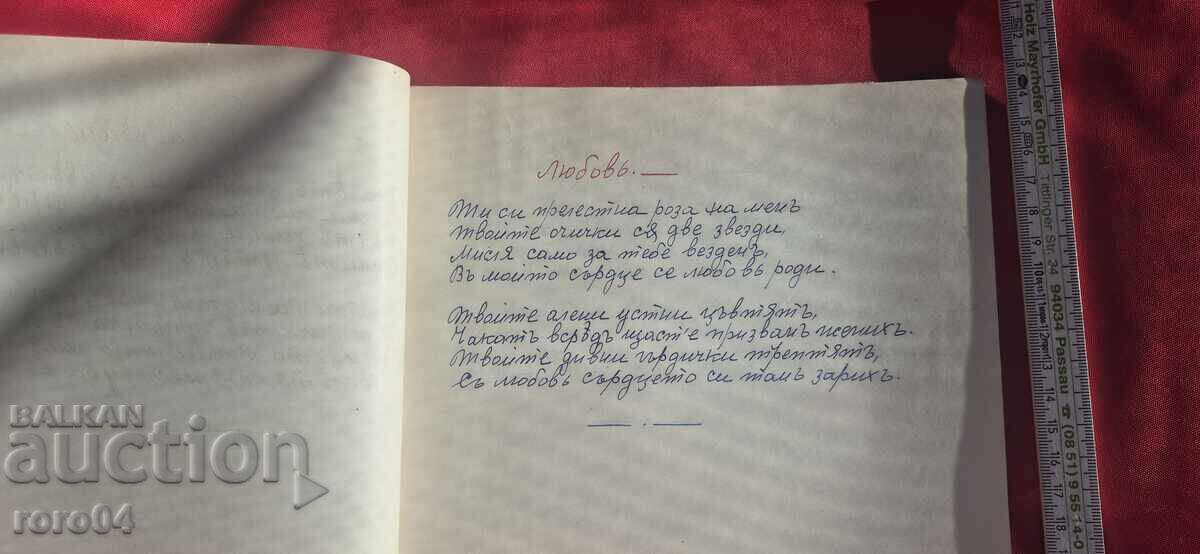 Любовь.—
Ти си прелестна роза на менъ
твойте очички сѫ две звезди,
Мисля само за тебе везденъ,
Въ мойто сърдце се любовь роди.
Твойте алени устни цъвтятъ,
Чакатъ всрѣдъ щаст'е призванъ женихъ.
Твойте дивни гърдички трептятъ,
Съ любовь сърдцето си тамъ зарихъ.
— . —
BALKAN
auction
roro04
Holz Mayrhofer GmbH Tittlinger Str. 34 94034 Passau ☎ (0851) 95514-0